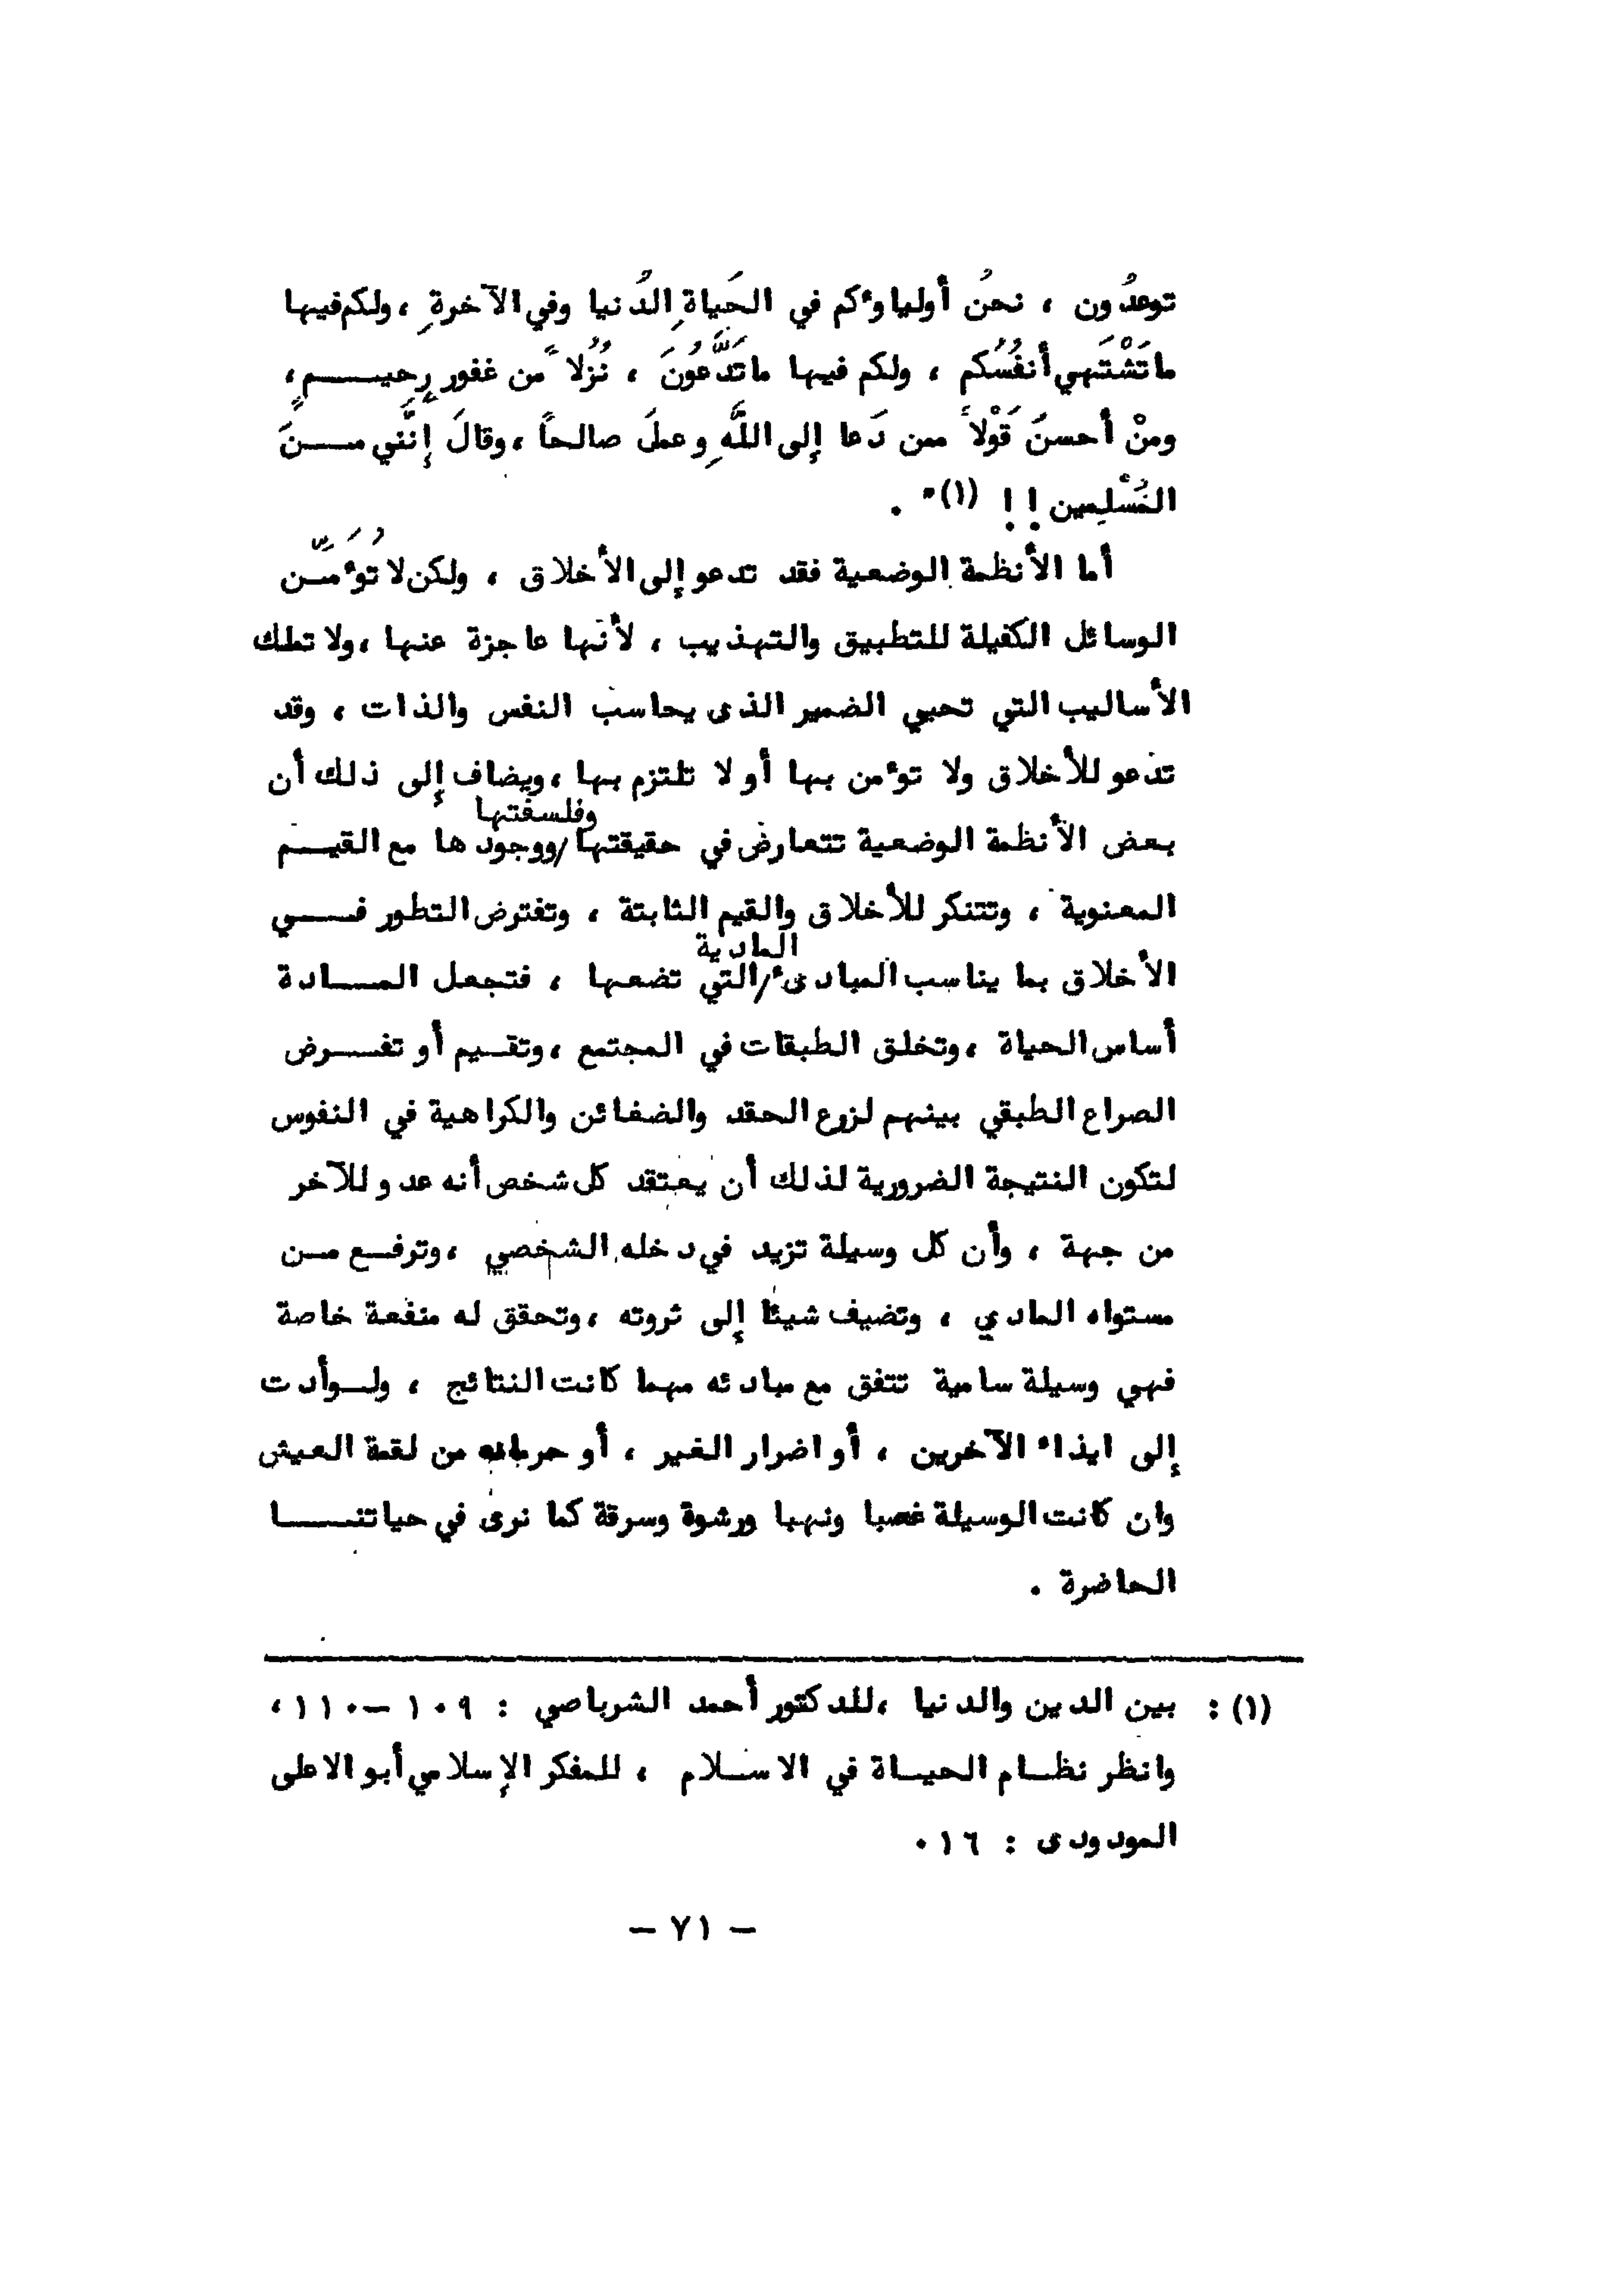 توعدُون ، نحنُ أولياوءكم في الحَياةِ الدُنيا وفي الآخرةِ ، ولكم فيها
ما تَشْتَهي أنفُسُكم ، ولكم فيها ما تَدَّعُونَ ، نُزُلاً من غفورٍ رحيـــمٍ ،
ومنْ أحسنَ قَوْلاً ممن دَعا إلى اللَّهِ وعملَ صالحاً ، وقالَ إنَّني مـــنَ
المُسْلِمين !! (١)" .
أما الأنظمة الوضعية فقد تدعو إلى الأخلاق ، ولكن لا تُوءَمِّـن
الوسائل الكفيلة للتطبيق والتهذيب ، لأنها عاجزة عنها ، ولا تملك
الأساليب التي تحيي الضمير الذى يحاسب النفس والذات ، وقد
تدعو للأخلاق ولا توءمن بها أو لا تلتزم بها ، ويضاف إلى ذلك أن
وفلسفتها
بعض الأنظمة الوضعية تتعارض في حقيقتها / ووجودها مع القيـــم
المعنوية ، وتتنكر للأخلاق والقيم الثابتة ، وتفترض التطور فـــي
المادية
الأخلاق بما يناسب المبادىء / التي تضعها ، فتجعل المـــادة
أساس الحياة ، وتخلق الطبقات في المجتمع ، وتقـيم أو تفـــرض
الصراع الطبقي بينهم لزرع الحقد والضغائن والكراهية في النفوس
لتكون النتيجة الضرورية لذلك أن يعتقد كل شخص أنه عدو للآخر
من جهة ، وأن كل وسيلة تزيد في دخله الشخصي ، وترفـع مـن
مستواه المادي ، وتضيف شيئا إلى ثروته ، وتحقق له منفعة خاصة
فهي وسيلة سامية تتفق مع مبادئه مهما كانت النتائج ، ولــو أدت
إلى ايذاء الآخرين ، أو اضرار الغير ، أو حرمانه من لقمة العيش
وان كانت الوسيلة غصبا ونهبا ورشوة وسرقة كما نرى في حياتنـــا
الحاضرة .
(١) : بين الدين والدنيا ، للدكتور أحمد الشرباصي : ١٠٩ – ١١٠ ،
وانظر نظـام الحيـاة في الاسـلام ، للمفكر الإسلامي أبو الاعلى
المودودى : ١٦ .
– ٧١ –